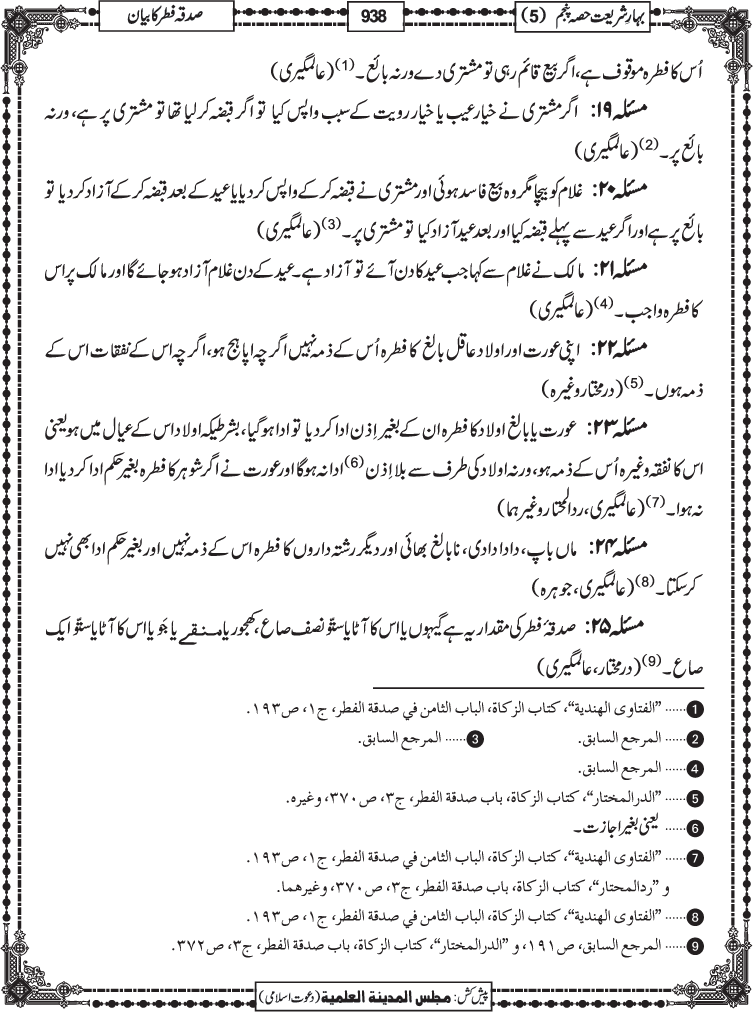 بہارِشریعت حصہ پنجم (5)
938
صدقہ فطر کا بیان
اُس کا فطرہ موقوف ہے، اگر بیع قائم رہی تو مشتری دے ورنہ بائع۔ (1) (عالمگیری)
مسئلہ ۱۹: اگر مشتری نے خیار عیب یا خیار رویت کے سبب واپس کیا تو اگر قبضہ کر لیا تھا تو مشتری پر ہے، ورنہ
بائع پر۔ (2) (عالمگیری)
مسئلہ ۲۰: غلام کو بیچا مگر وہ بیع فاسد ہوئی اور مشتری نے قبضہ کر کے واپس کر دیا یا عید کے بعد قبضہ کر کے آزاد کر دیا تو
بائع پر ہے اور اگر عید سے پہلے قبضہ کیا اور بعد عید آزاد کیا تو مشتری پر۔ (3) (عالمگیری)
مسئلہ ۲۱: مالک نے غلام سے کہا جب عید کا دن آئے تو آزاد ہے۔ عید کے دن غلام آزاد ہو جائے گا اور مالک پر اس
کا فطرہ واجب۔ (4) (عالمگیری)
مسئلہ ۲۲: اپنی عورت اور اولاد عاقل بالغ کا فطرہ اُس کے ذمہ نہیں اگرچہ اپاہج ہو، اگرچہ اس کے نفقات اس کے
ذمہ ہوں۔ (5) (درمختار وغیرہ)
مسئلہ ۲۳: عورت یا بالغ اولاد کا فطرہ ان کے بغیر اِذن ادا کر دیا تو ادا ہوگیا، بشرطیکہ اولاد اس کے عیال میں ہو یعنی
اس کا نفقہ وغیرہ اُس کے ذمہ ہو، ورنہ اولاد کی طرف سے بلا اِذن (6) ادا نہ ہوگا اور عورت نے اگر شوہر کا فطرہ بغیر حکم ادا کر دیا ادا
نہ ہوا۔ (7) (عالمگیری، ردالمحتار وغیرہما)
مسئلہ ۲۴: ماں باپ، دادا دادی، نابالغ بھائی اور دیگر رشتہ داروں کا فطرہ اس کے ذمہ نہیں اور بغیر حکم ادا بھی نہیں
کر سکتا۔ (8) (عالمگیری، جوہرہ)
مسئلہ ۲۵: صدقۂ فطر کی مقدار یہ ہے گیہوں یا اس کا آٹا یا ستّو نصف صاع، کھجور یا منقے یا جَو یا اس کا آٹا یا ستّو ایک
صاع۔ (9) (درمختار، عالمگیری)
1 ...... "الفتاوی الھندیة"، کتاب الزکاة، الباب الثامن في صدقة الفطر، ج۱، ص۱۹۳.
2 ...... المرجع السابق. 3 ...... المرجع السابق.
4 ...... المرجع السابق.
5 ...... "الدرالمختار"، کتاب الزکاة، باب صدقة الفطر، ج۳، ص۳۷۰، وغیرہ.
6 ...... یعنی بغیر اجازت۔
7 ...... "الفتاوی الھندیة"، کتاب الزکاة، الباب الثامن في صدقة الفطر، ج۱، ص۱۹۳.
و "ردالمحتار"، کتاب الزکاة، باب صدقة الفطر، ج۳، ص۳۷۰، وغیرھما.
8 ...... "الفتاوی الھندیة"، کتاب الزکاة، الباب الثامن في صدقة الفطر، ج۱، ص۱۹۳.
9 ...... المرجع السابق، ص۱۹۱، و "الدرالمختار"، کتاب الزکاة، باب صدقة الفطر، ج۳، ص۳۷۲.
پیش کش: مجلس المدینة العلمیة (دعوت اسلامی)